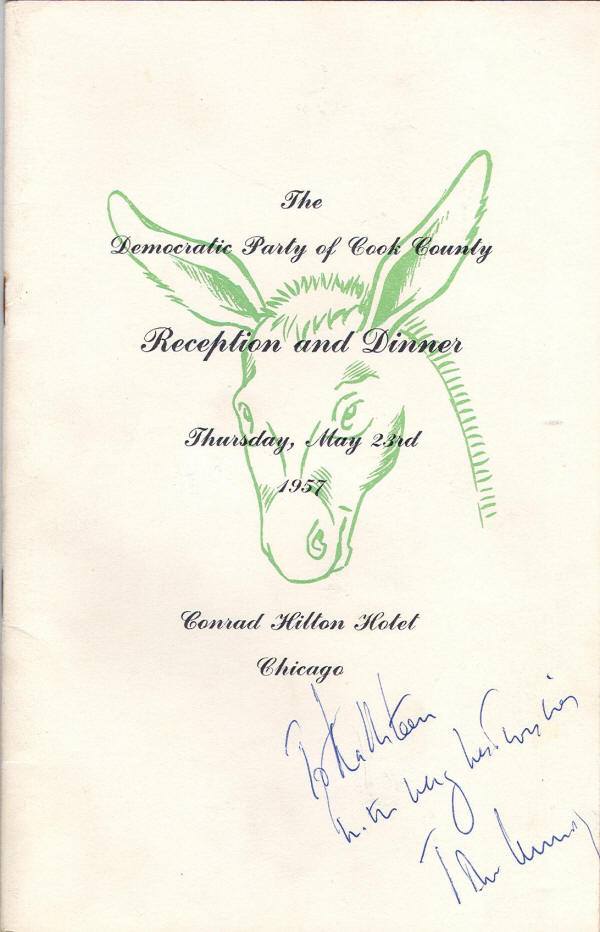 The
Democratic Party of Cook County
Reception and Dinner
Thursday, May 23rd
1957
Conrad Hilton Hotel
Chicago
To Kathleen
with very best wishes